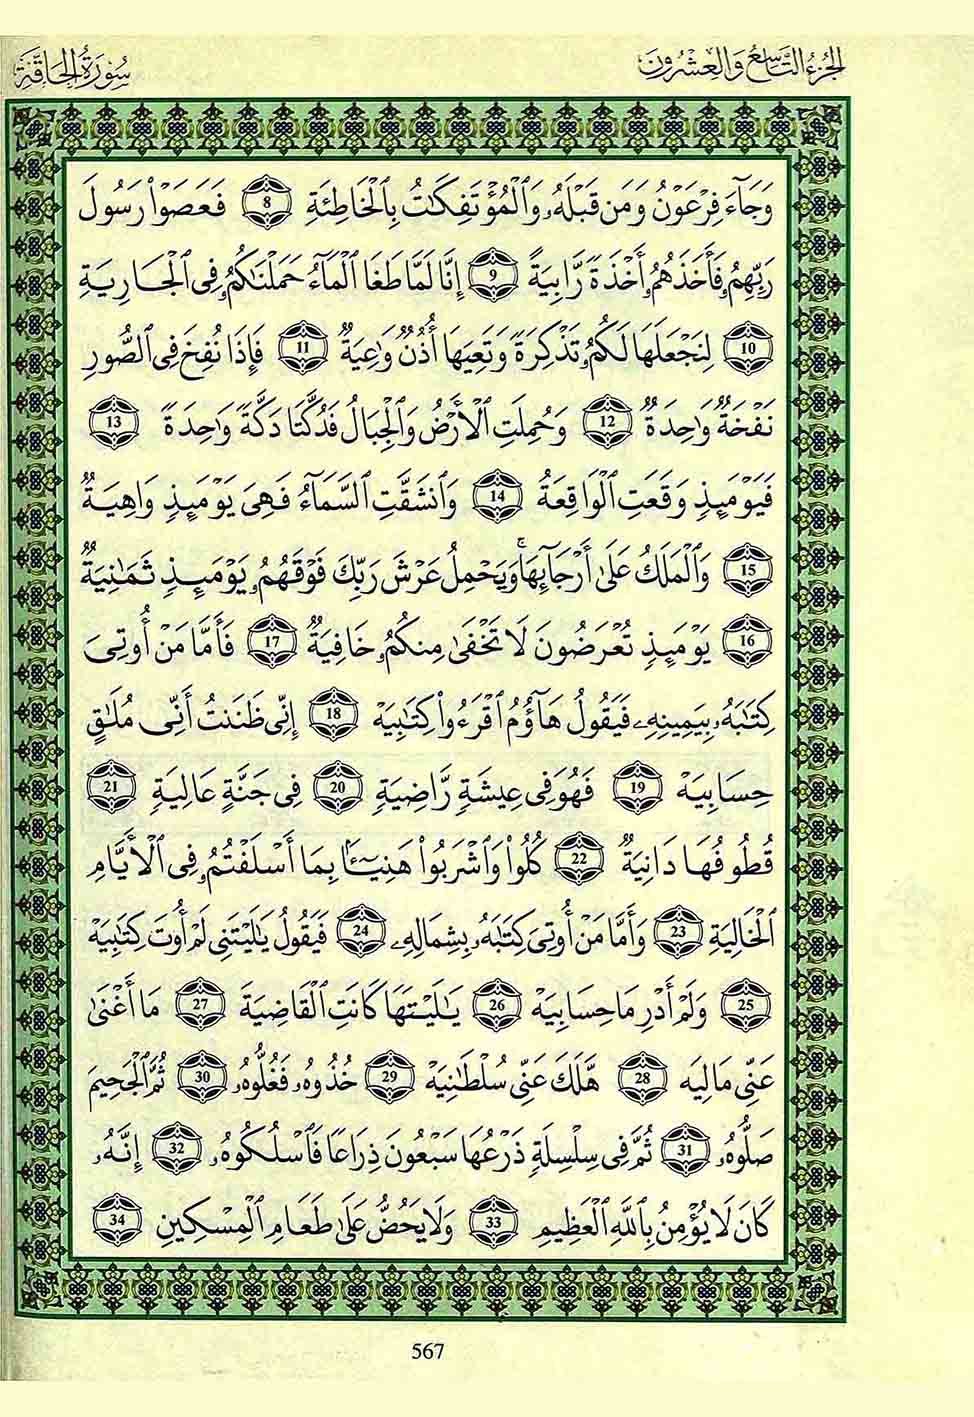 الجزء التاسع والعشرون
سورة الحاقة
وَجَآءَ فِرْعَوْنُ وَمَن قَبْلَهُۥ وَٱلْمُؤْتَفِكَٰتُ بِٱلْخَاطِئَةِ 8 فَعَصَوْا۟ رَسُولَ
رَبِّهِمُۥ فَأَخَذَهُمُۥ أَخْذَةً رَّابِيَةً 9 إِنَّا لَمَّا طَغَا ٱلْمَآءُ حَمَلْنَٰكُمُۥ فِى ٱلْجَارِيَةِ
10 لِنَجْعَلَهَا لَكُمُۥ تَذْكِرَةً وَتَعِيَهَا أُذُنٌ وَٰعِيَةٌ 11 فَإِذَا نُفِخَ فِى ٱلصُّورِ
نَفْخَةٌ وَٰحِدَةٌ 12 وَحُمِلَتِ ٱلْأَرْضُ وَٱلْجِبَالُ فَدُكَّتَا دَكَّةً وَٰحِدَةً 13
فَيَوْمَئِذٍ وَقَعَتِ ٱلْوَاقِعَةُ 14 وَٱنشَقَّتِ ٱلسَّمَآءُ فَهِىَ يَوْمَئِذٍ وَاهِيَةٌ
15 وَٱلْمَلَكُ عَلَىٰٓ أَرْجَآئِهَا ۚ وَيَحْمِلُ عَرْشَ رَبِّكَ فَوْقَهُمُۥ يَوْمَئِذٍ ثَمَٰنِيَةٌ
16 يَوْمَئِذٍ تُعْرَضُونَ لَا تَخْفَىٰ مِنكُمُۥ خَافِيَةٌ 17 فَأَمَّا مَنْ أُوتِىَ
كِتَٰبَهُۥ بِيَمِينِهِۦ فَيَقُولُ هَآؤُمُ ٱقْرَءُوا۟ كِتَٰبِيَهْ 18 إِنِّى ظَنَنتُ أَنِّى مُلَٰقٍ
حِسَابِيَهْ 19 فَهُوَ فِى عِيشَةٍ رَّاضِيَةٍ 20 فِى جَنَّةٍ عَالِيَةٍ 21
قُطُوفُهَا دَانِيَةٌ 22 كُلُوا۟ وَٱشْرَبُوا۟ هَنِيٓـًٔۢا بِمَآ أَسْلَفْتُمُۥ فِى ٱلْأَيَّامِ
ٱلْخَالِيَةِ 23 وَأَمَّا مَنْ أُوتِىَ كِتَٰبَهُۥ بِشِمَالِهِۦ 24 فَيَقُولُ يَٰلَيْتَنِى لَمْ أُوتَ كِتَٰبِيَهْ
25 وَلَمْ أَدْرِ مَا حِسَابِيَهْ 26 يَٰلَيْتَهَا كَانَتِ ٱلْقَاضِيَةَ 27 مَآ أَغْنَىٰ
عَنِّى مَالِيَه 28 هَّلَكَ عَنِّى سُلْطَٰنِيَهْ 29 خُذُوهُۥ فَغُلُّوهُۥ 30 ثُمَّ ٱلْجَحِيمَ
صَلُّوهُۥ 31 ثُمَّ فِى سِلْسِلَةٍ ذَرْعُهَا سَبْعُونَ ذِرَاعًا فَٱسْلُكُوهُۥ 32 إِنَّهُۥ
كَانَ لَا يُؤْمِنُ بِٱللَّهِ ٱلْعَظِيمِ 33 وَلَا يَحُضُّ عَلَىٰ طَعَامِ ٱلْمِسْكِينِ 34
567